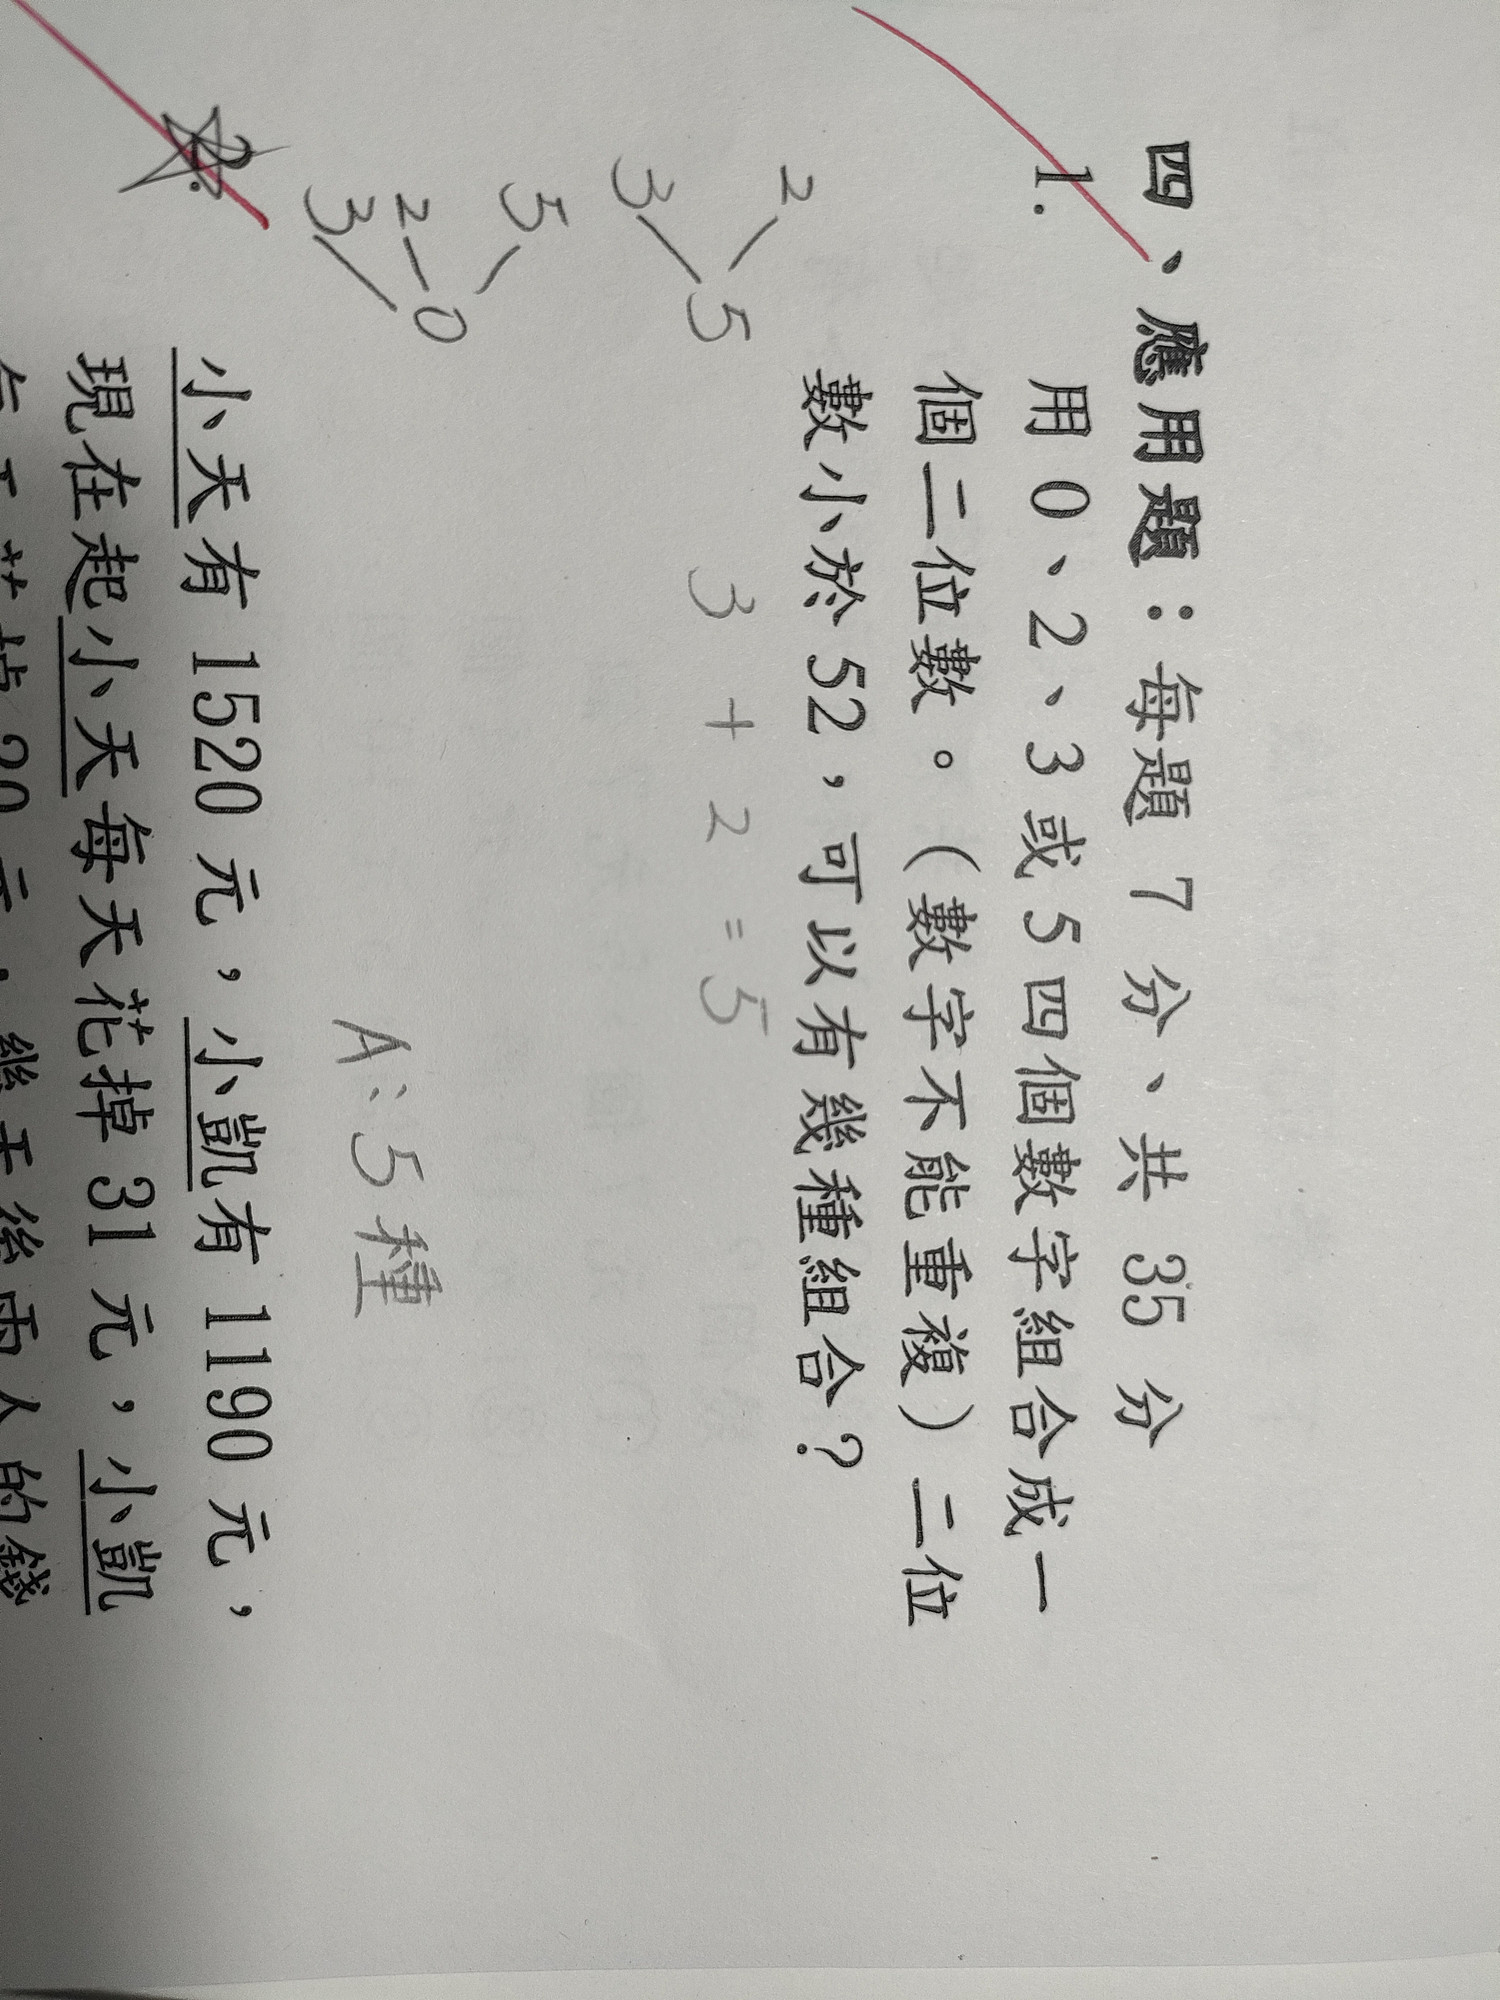 四、應用題：每題 7 分、共 35 分
1.
用 0、2、3 或 5 四個數字組合成一
個二位數。（數字不能重複）二位
數小於 52，可以有幾種組合？
2
5
3
3 + 2 = 5
5
2
0
3
A：5種
2.
小天有 1520 元，小凱有 1190 元，
現在起小天每天花掉 31 元，小凱
每天花掉 20 元，幾天後兩人的錢